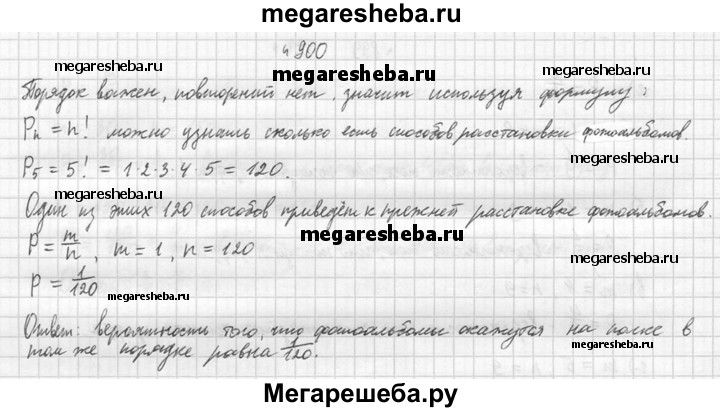 megaresheba.ru
ч 900
megaresheba.ru megaresheba.ru megaresheba.ru
Порядок важен, повторений нет, значит используя формулу:
Pn = n! можно узнать сколько есть способов расстановки фотоальбомов.
megaresheba.ru megaresheba.ru
P5 = 5! = 1·2·3·4·5 = 120.
megaresheba.ru
Один из этих 120 способов приведёт к прежней расстановке фотоальбомов.
megaresheba.ru
P = m/n, m = 1, n = 120
megaresheba.ru
P = 1/120
megaresheba.ru
Ответ: вероятность того, что фотоальбомы окажутся на полке в
том же порядке равна 1/120.
megaresheba.ru megaresheba.ru
Мегарешеба.ру